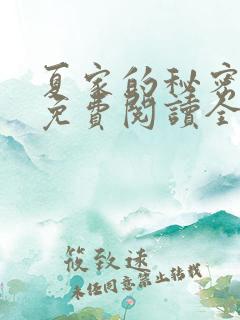 夏家的秘密
免費閱讀全
筱致速
未经同意禁止转载